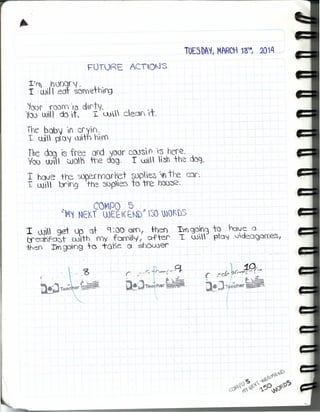 TUESDAY, MARCH 18TH, 2019
FUTURE ACTIONS
I'm hungry.
I will eat something
Your room is dirty.
You will do it. I will clean it.
The baby in cryin.
I will play with him
The dog is free and your cousin is here.
You will walk the dog. I will lish the dog.
I have the supermarket suplies in the car.
I will bring the suplies to the house.
COMPO 5
"MY NEXT WEEKEND" 130 WORDS
I will get up at 9:00 am, then Im going to have a
breakfast with my family, after I will play videogames,
then Im going to take a shower
8
9
10
Teacher
Teacher
Teacher
COMPO 5
MY NEXT WEEKEND
150
WORDS